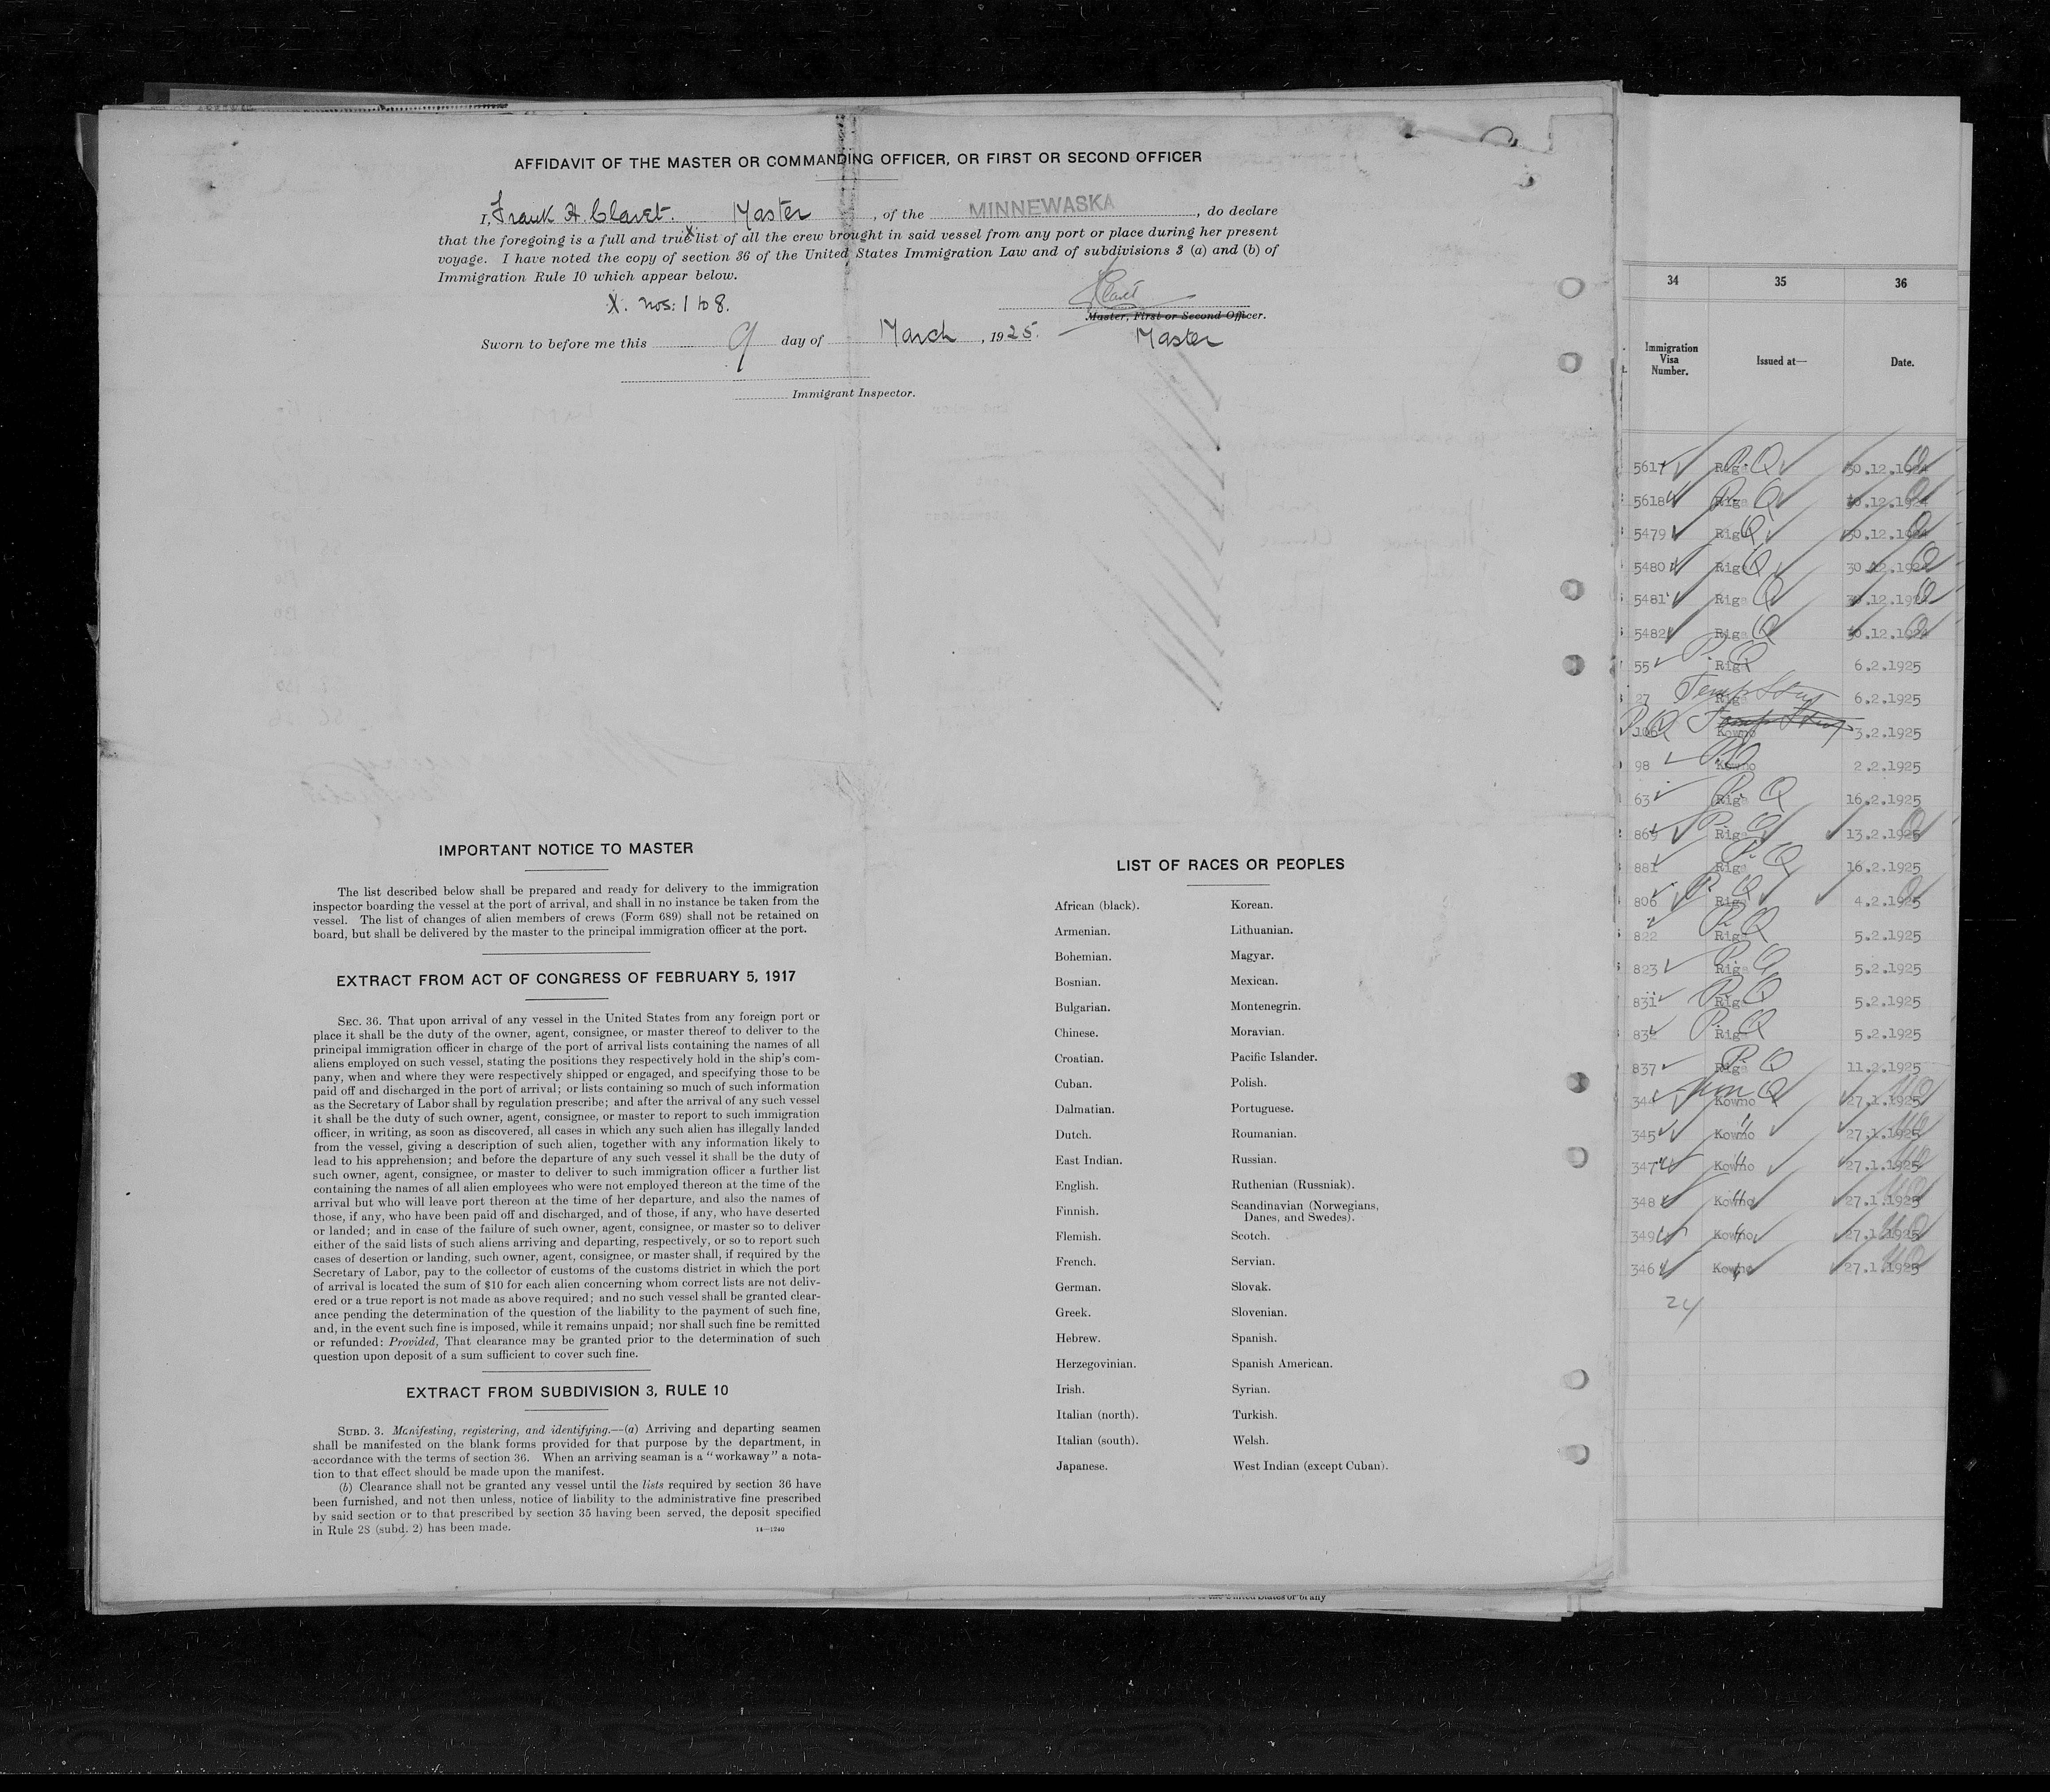 AFFIDAVIT OF THE MASTER OR COMMANDING OFFICER, OR FIRST OR SECOND OFFICER
I, Frank H. Claret. Master, of the MINNEWASKA, do declare
that the foregoing is a full and true x list of all the crew brought in said vessel from any port or place during her present
voyage. I have noted the copy of section 36 of the United States Immigration Law and of subdivisions 3 (a) and (b) of
Immigration Rule 10 which appear below.
X. nos: 1 to 8.
Claret
Master, First or Second Officer.
Master
Sworn to before me this 9 day of March, 1925.
Immigrant Inspector.
IMPORTANT NOTICE TO MASTER
The list described below shall be prepared and ready for delivery to the immigration
inspector boarding the vessel at the port of arrival, and shall in no instance be taken from the
vessel. The list of changes of alien members of crews (Form 689) shall not be retained on
board, but shall be delivered by the master to the principal immigration officer at the port.
EXTRACT FROM ACT OF CONGRESS OF FEBRUARY 5, 1917
SEC. 36. That upon arrival of any vessel in the United States from any foreign port or
place it shall be the duty of the owner, agent, consignee, or master thereof to deliver to the
principal immigration officer in charge of the port of arrival lists containing the names of all
aliens employed on such vessel, stating the positions they respectively hold in the ship's com-
pany, when and where they were respectively shipped or engaged, and specifying those to be
paid off and discharged in the port of arrival; or lists containing so much of such information
as the Secretary of Labor shall by regulation prescribe; and after the arrival of any such vessel
it shall be the duty of such owner, agent, consignee, or master to report to such immigration
officer, in writing, as soon as discovered, all cases in which any such alien has illegally landed
from the vessel, giving a description of such alien, together with any information likely to
lead to his apprehension; and before the departure of any such vessel it shall be the duty of
such owner, agent, consignee, or master to deliver to such immigration officer a further list
containing the names of all alien employees who were not employed thereon at the time of the
arrival but who will leave port thereon at the time of her departure, and also the names of
those, if any, who have been paid off and discharged, and of those, if any, who have deserted
or landed; and in case of the failure of such owner, agent, consignee, or master so to deliver
either of the said lists of such aliens arriving and departing, respectively, or so to report such
cases of desertion or landing, such owner, agent, consignee, or master shall, if required by the
Secretary of Labor, pay to the collector of customs of the customs district in which the port
of arrival is located the sum of $10 for each alien concerning whom correct lists are not deliv-
ered or a true report is not made as above required; and no such vessel shall be granted clear-
ance pending the determination of the question of the liability to the payment of such fine,
and, in the event such fine is imposed, while it remains unpaid; nor shall such fine be remitted
or refunded: Provided, That clearance may be granted prior to the determination of such
question upon deposit of a sum sufficient to cover such fine.
EXTRACT FROM SUBDIVISION 3, RULE 10
SUBD. 3. Manifesting, registering, and identifying.—(a) Arriving and departing seamen
shall be manifested on the blank forms provided for that purpose by the department, in
accordance with the terms of section 36. When an arriving seaman is a "workaway" a nota-
tion to that effect should be made upon the manifest.
(b) Clearance shall not be granted any vessel until the lists required by section 36 have
been furnished, and not then unless, notice of liability to the administrative fine prescribed
by said section or to that prescribed by section 35 having been served, the deposit specified
in Rule 28 (subd. 2) has been made.
14—1240
LIST OF RACES OR PEOPLES
African (black). Korean.
Armenian. Lithuanian.
Bohemian. Magyar.
Bosnian. Mexican.
Bulgarian. Montenegrin.
Chinese. Moravian.
Croatian. Pacific Islander.
Cuban. Polish.
Dalmatian. Portuguese.
Dutch. Roumanian.
East Indian. Russian.
English. Ruthenian (Russniak).
Finnish. Scandinavian (Norwegians,
Danes, and Swedes).
Flemish. Scotch.
French. Servian.
German. Slovak.
Greek. Slovenian.
Hebrew. Spanish.
Herzegovinian. Spanish American.
Irish. Syrian.
Italian (north). Turkish.
Italian (south). Welsh.
Japanese. West Indian (except Cuban).
34 35 36
Immigration
Visa
Number.
Issued at—
Date.
5617 Riga 30.12.1924
5618 Riga 30.12.1924
5479 Riga 30.12.1924
5480 Riga 30.12.1924
5481 Riga 30.12.1924
5482 Riga 30.12.1924
55 Riga 6.2.1925
27 Riga 6.2.1925
106 Kowno 3.2.1925
98 Kowno 2.2.1925
63 Riga 16.2.1925
869 Riga 13.2.1925
881 Riga 16.2.1925
806 Riga 4.2.1925
822 Riga 5.2.1925
823 Riga 5.2.1925
831 Riga 5.2.1925
832 Riga 5.2.1925
837 Riga 11.2.1925
344 Kowno 27.1.1925
345 Kowno 27.1.1925
347 Kowno 27.1.1925
348 Kowno 27.1.1925
349 Kowno 27.1.1925
346 Kowno 27.1.1925
24
the United States or of any